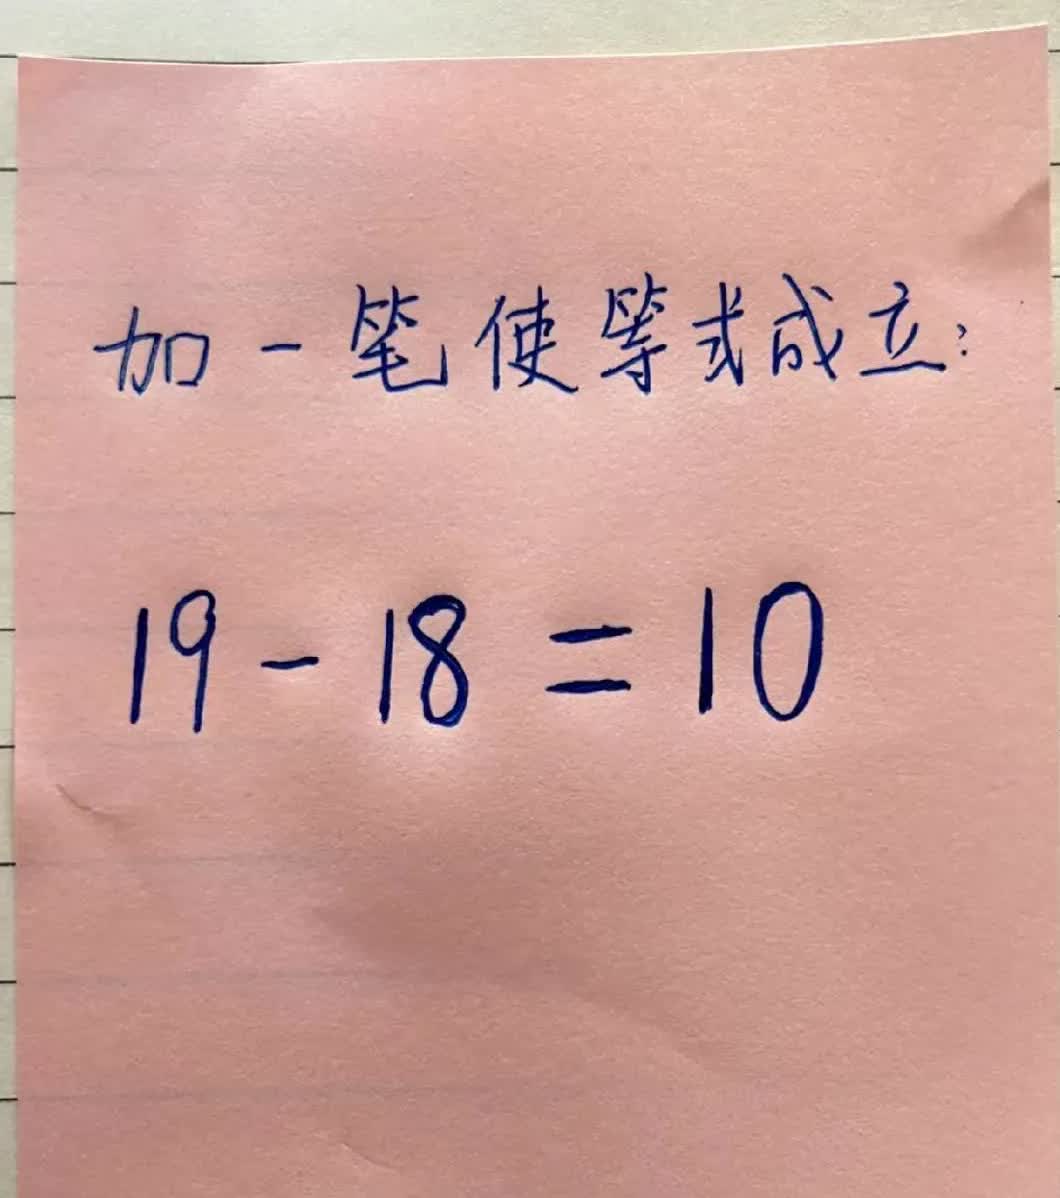 加一笔使等式成立:
19-18=10